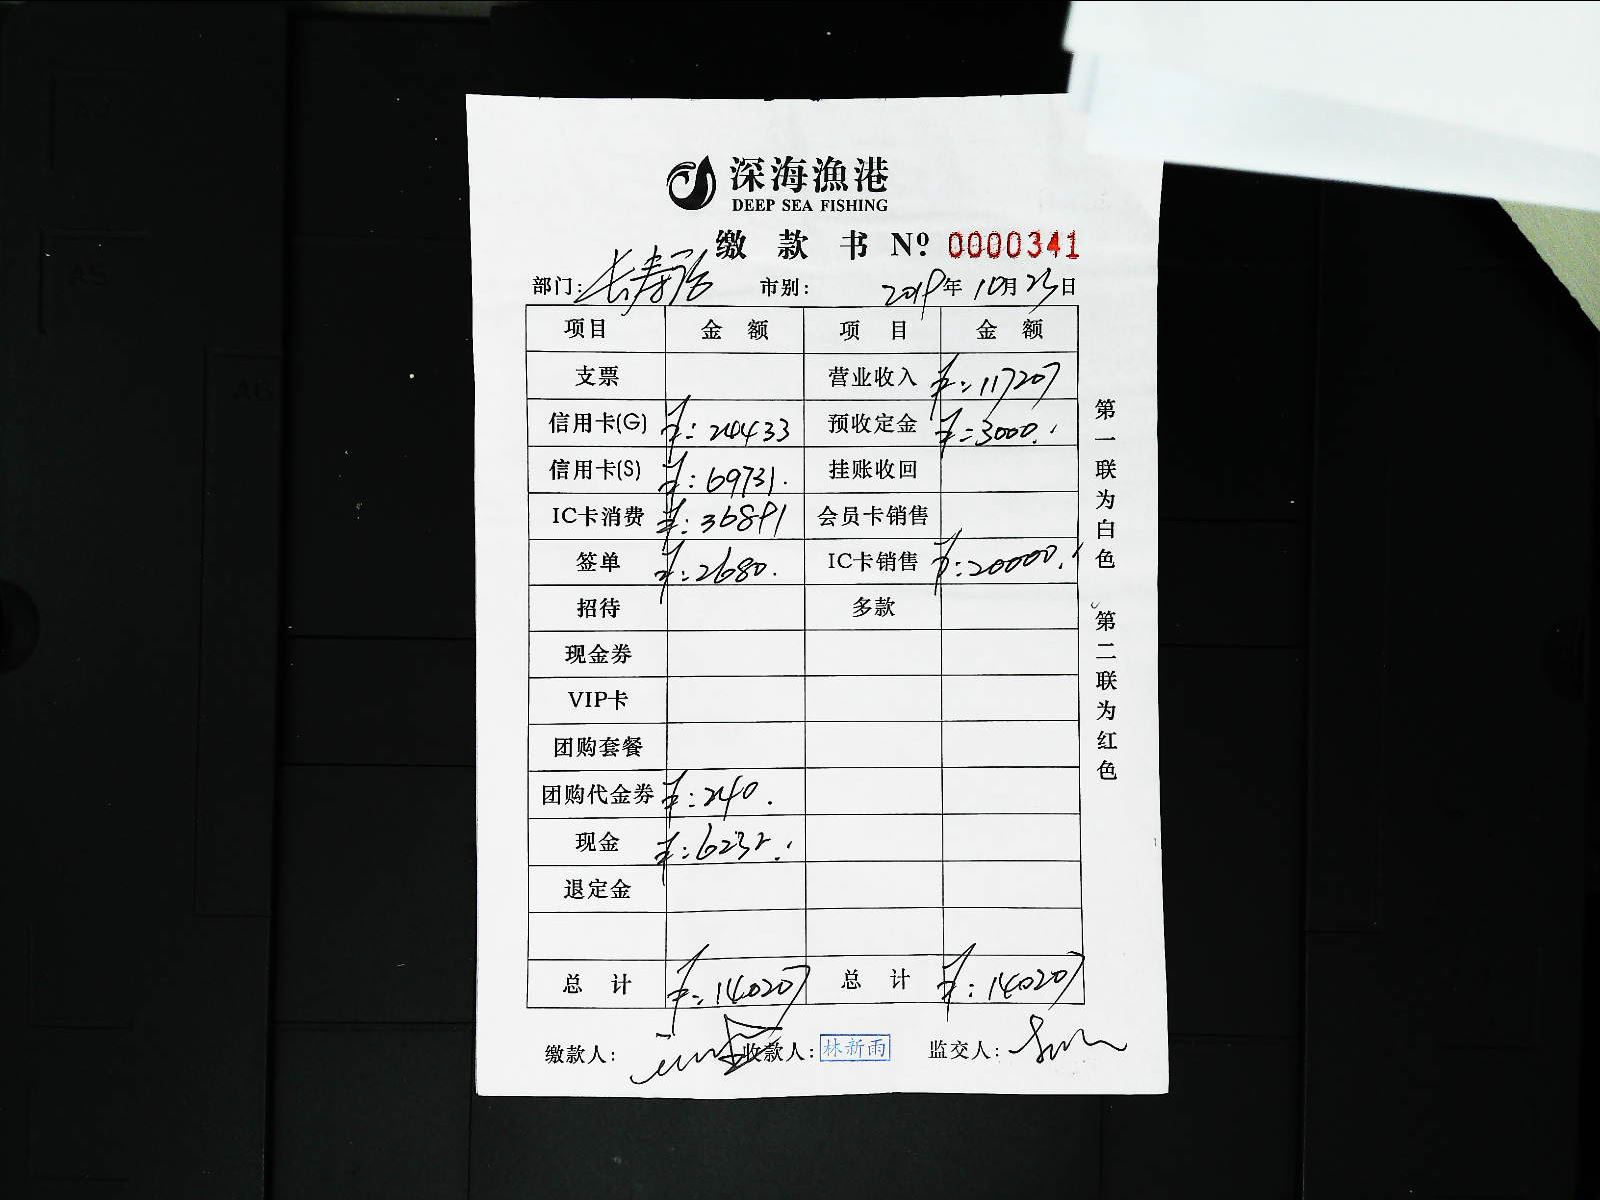 深海漁港
DEEP SEA FISHING
缴 款 书 Nº 0000341
部门：长寿路 市别： 2019年 10月 23日
项目 金 额 项 目 金 额
支票 营业收入 ¥：117207
信用卡(G) ¥：24433 预收定金 ¥：3000.
信用卡(S) ¥：69731. 挂账收回
IC卡消费 ¥：36891 会员卡销售
签单 ¥：2680. IC卡销售 ¥：20000.
招待 多款
现金券
VIP卡
团购套餐
团购代金券 ¥：240.
现金 ¥：6232.
退定金
总 计 ¥：140207 总 计 ¥：140207
缴款人： 收款人：林新雨 监交人：
第一联为白色 第二联为红色